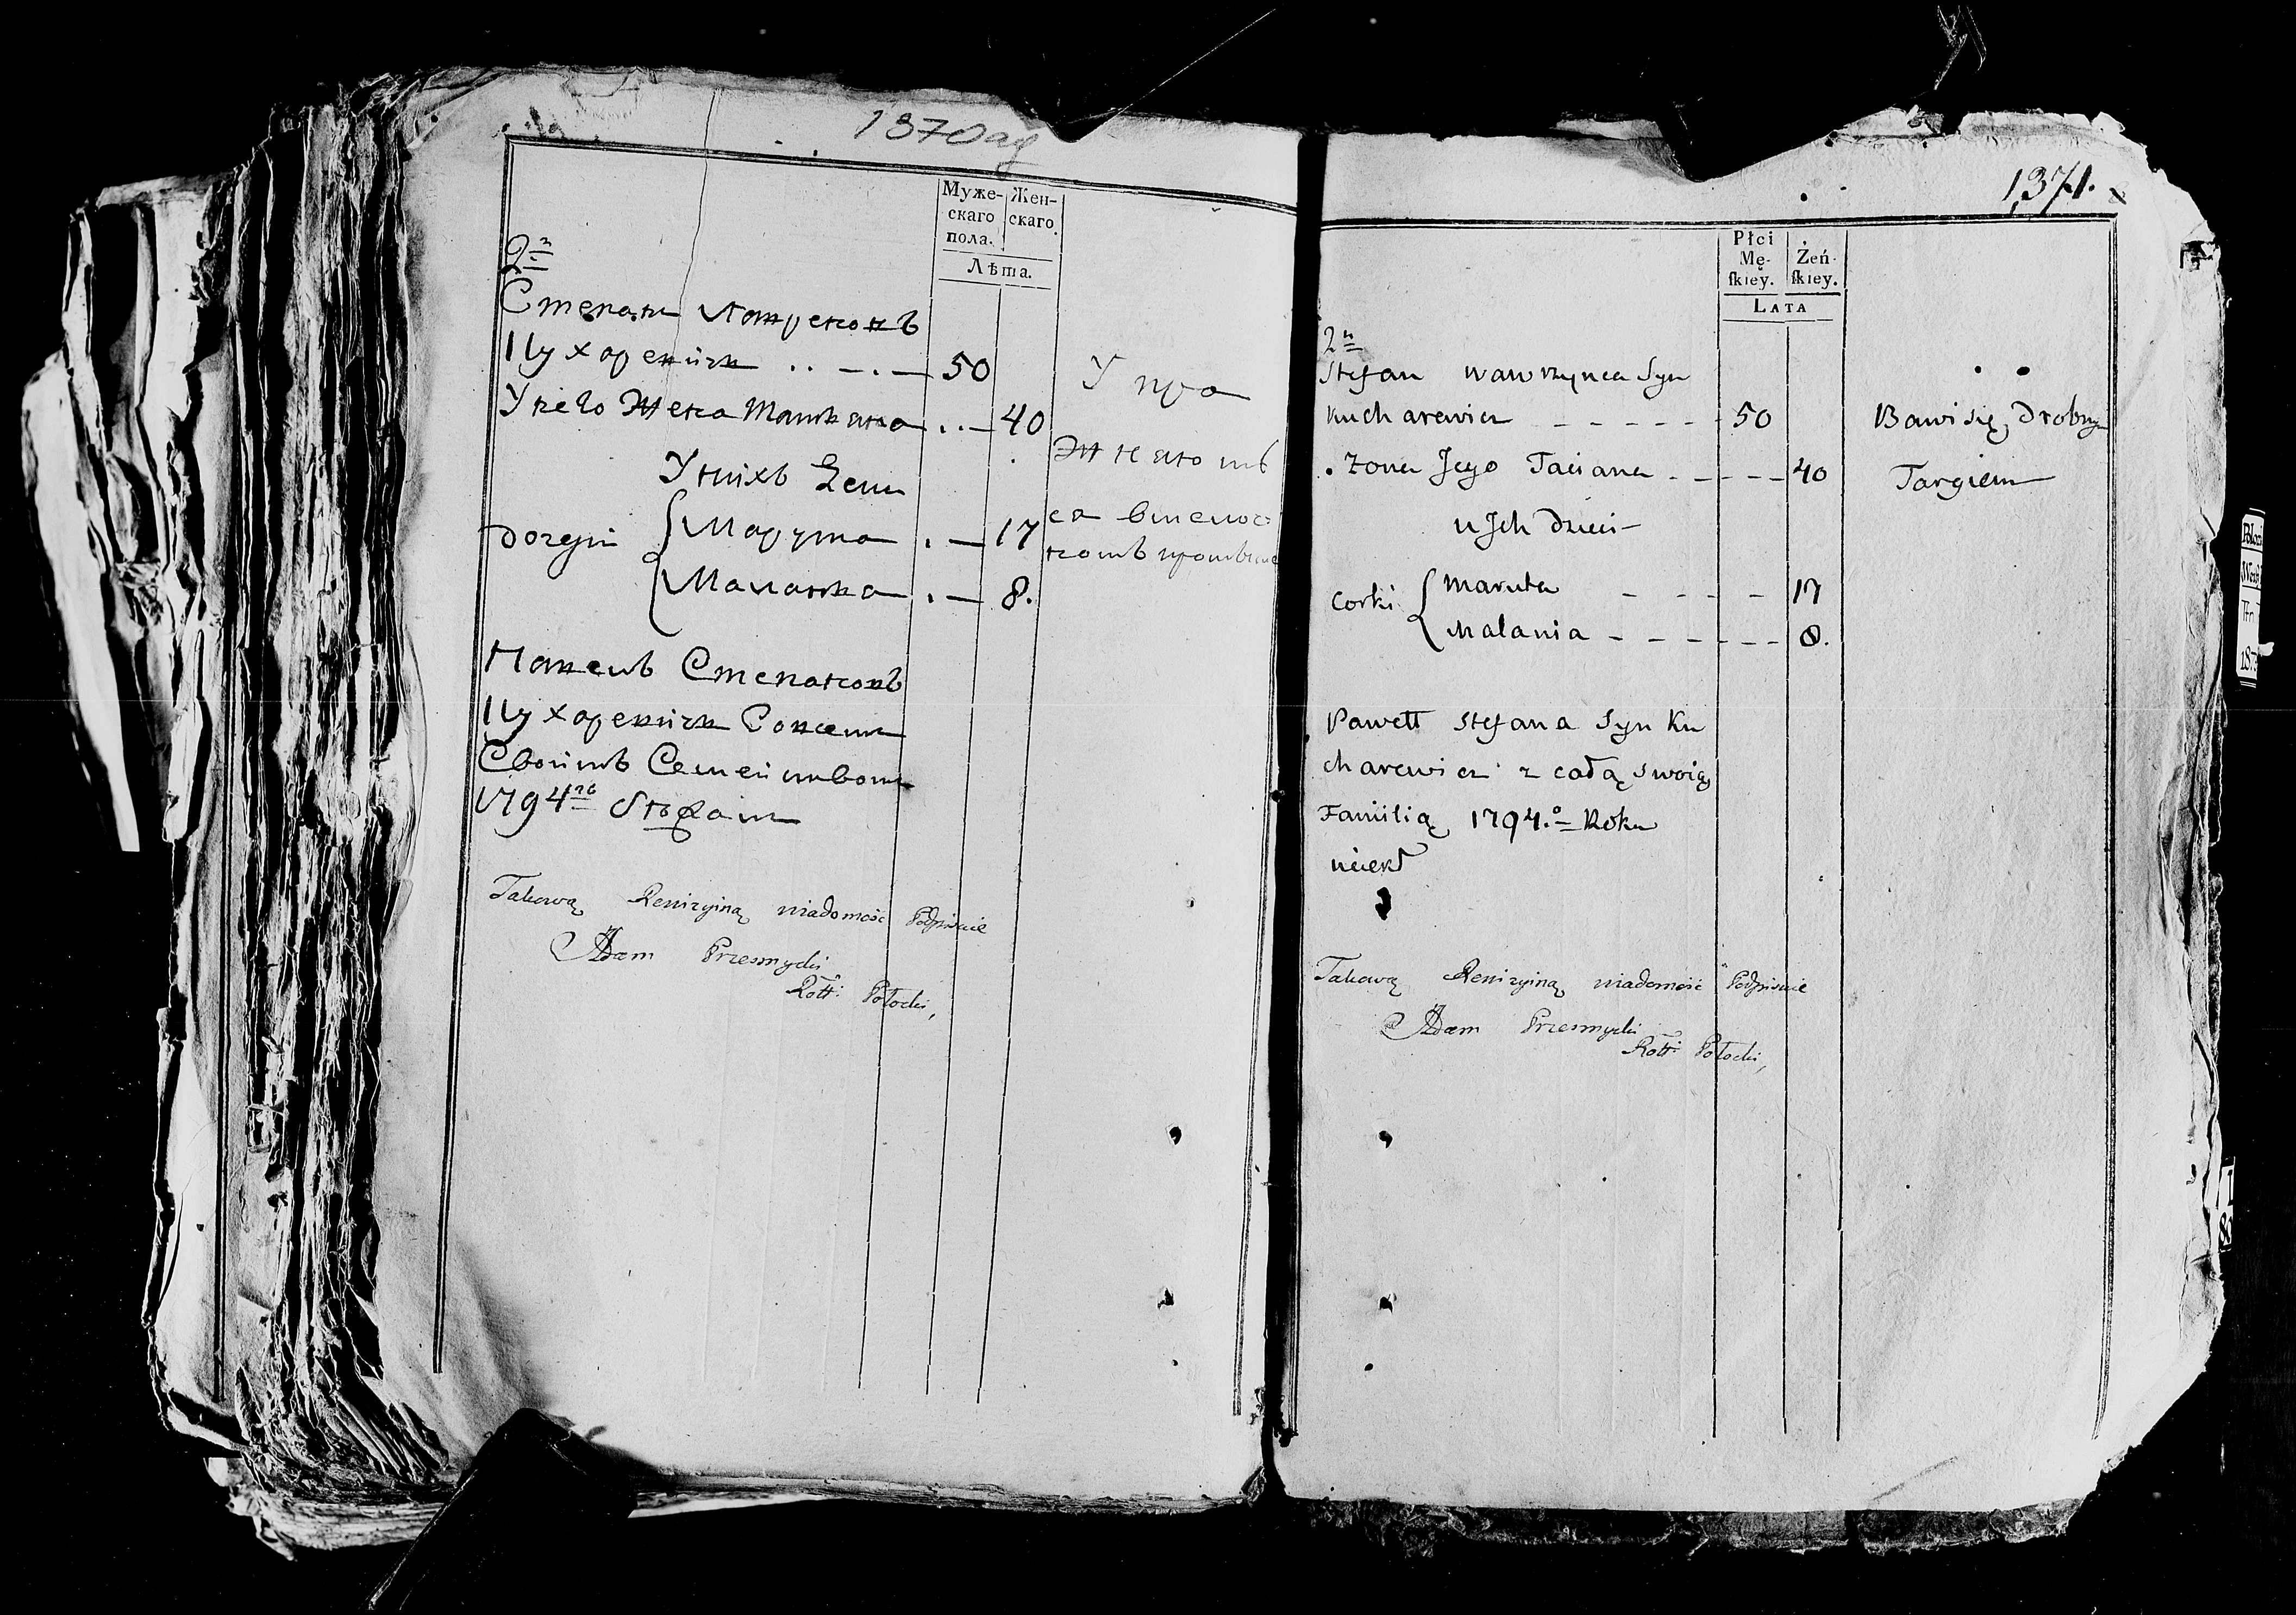 1370 аб
Муже-
скаго
пола.
Жен-
скаго.
Лѣта.
2.
Степанъ Лавреновъ
Кухаревичъ 50
У него Жена Татьяна 40
У нихъ дети
дочери Марута 17
Маланья 8.
Упра
жняетъ
ся
Павелъ Степановъ
Кухаревичъ Совсемъ
Своимъ Семействомъ
1794го
Takową Rewizyiną wiadomość Podpisuie
Adam Przesmycki
Rott: Połocki,
1371.
Płci
Mę-
ſkiey.
Żeń-
ſkiey.
LATA
2
Stefan wawrzynca Syn
Kucharewicz 50
żona Jego Taciana 40
u Jch dzieci
corki maruta 17
Malania 8.
Pawełł stefana Syn Ku
charewicz z całą swoią
Familią 1794.o Roku
uciekł
Bawi się drobnym
Targiem
Takową Rewizyiną wiadomość Podpisuie
Adam Przesmycki
Rott: Połocki,